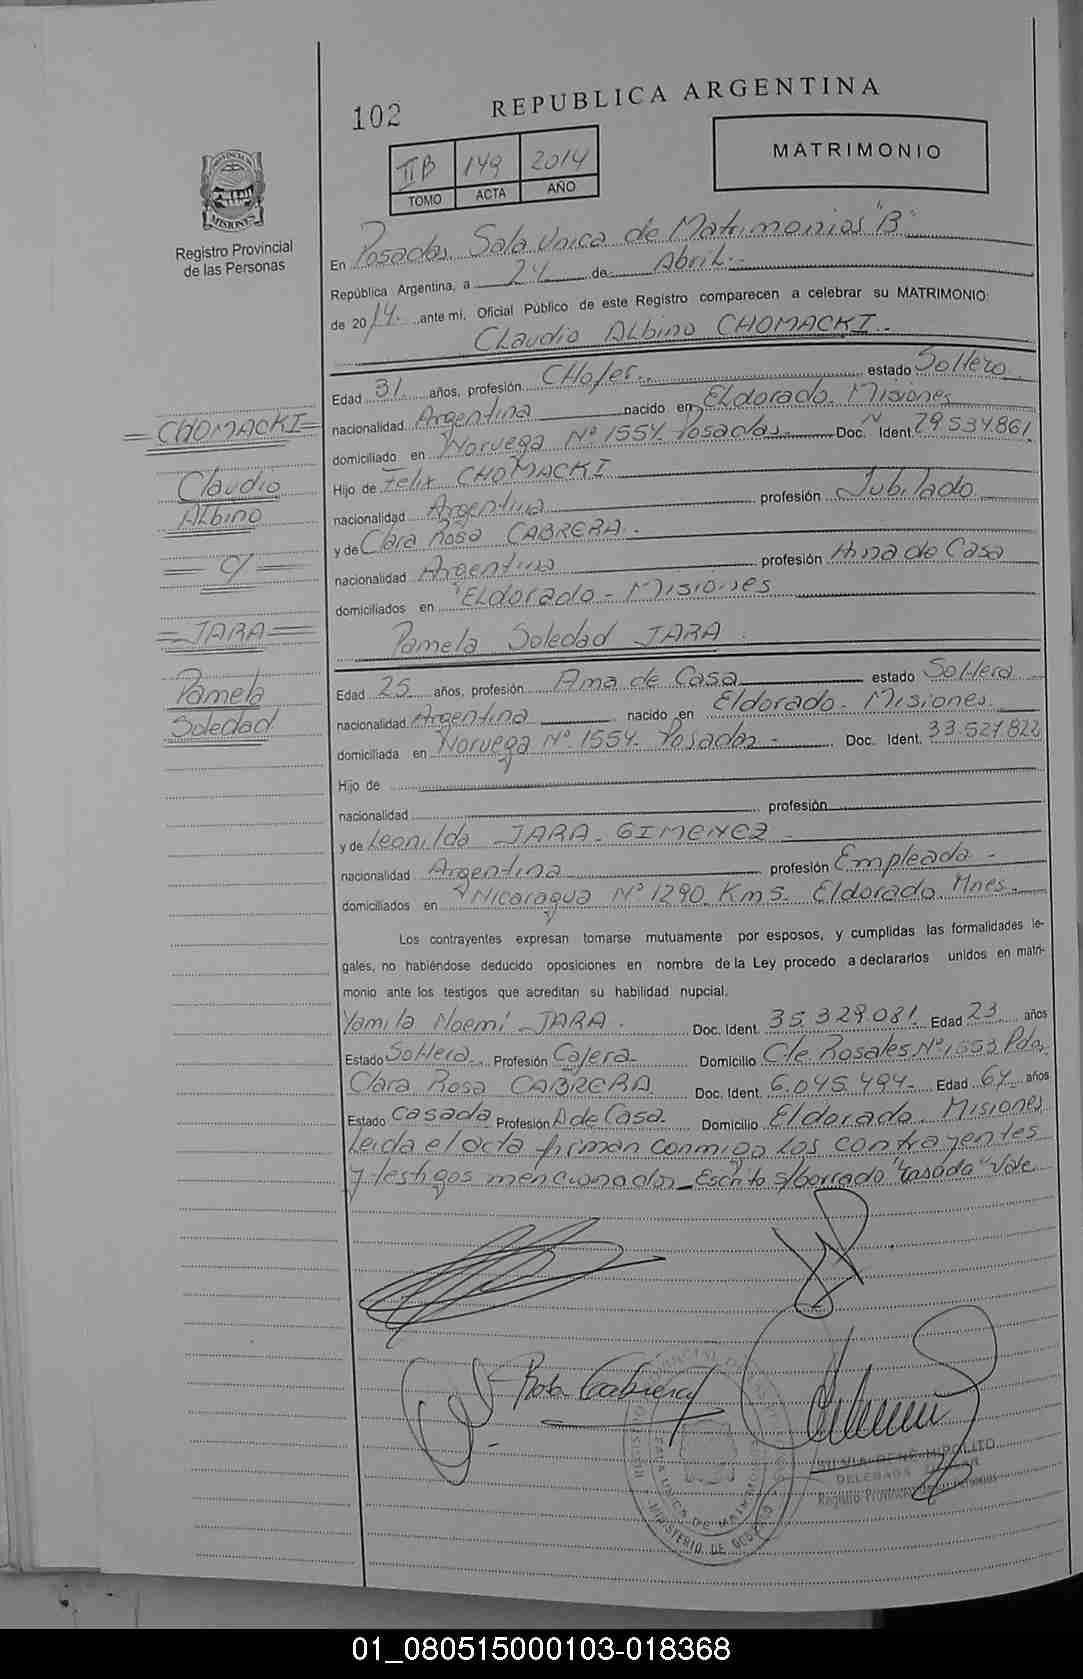 102
REPUBLICA ARGENTINA
II B 149 2014
TOMO ACTA AÑO
MATRIMONIO
PROVINCIA DE
MISIONES
Registro Provincial
de las Personas
En Posadas Sala Unica de Matrimonios "B"
República Argentina, a 24 de Abril.-
de 2014. ante mí, Oficial Público de este Registro comparecen a celebrar su MATRIMONIO:
Claudio Albino CHOMACKI.
Edad 31. años, profesión CHofer. estado Soltero
nacionalidad Argentina nacido en Eldorado. Misiones
domiciliado en Noruega Nº 1554. Posadas.- Doc. N Ident. 29.534.861
Hijo de Felix CHOMACKI
nacionalidad Argentina profesión Jubilado
y de Clara Rosa CABRERA.
nacionalidad Argentina profesión Ama de Casa
domiciliados en Eldorado - Misiones
= CHOMACKI =
Claudio
Albino
= c/ =
= JARA =
Pamela
Soledad
Pamela Soledad JARA.
Edad 25 años, profesión Ama de Casa estado Soltera
nacionalidad Argentina nacido en Eldorado. Misiones
domiciliada en Noruega Nº. 1554. Posadas - Doc. Ident. 33.527.822
Hijo de
nacionalidad profesión
y de Leonilda JARA - GIMENEZ -
nacionalidad Argentina profesión Empleada -
domiciliados en Nicaragua Nº 1290. Km 5. Eldorado. Mnes.
Los contrayentes expresan tomarse mutuamente por esposos, y cumplidas las formalidades le-
gales, no habiéndose deducido oposiciones en nombre de la Ley procedo a declararlos unidos en matri-
monio ante los testigos que acreditan su habilidad nupcial.
Yamila Noemí JARA. Doc. Ident. 35.329.081. Edad 23 años
Estado Soltera. Profesión Cajera. Domicilio Cle Rosales Nº 1653 Pdas
Clara Rosa CABRERA Doc. Ident. 6.045.494- Edad 64 años
Estado Casada Profesión A de Casa. Domicilio Eldorado. Misiones
Leida el acta firman conmigo los contrayentes
y testigos mencionados_ Escrito s/borrado "casada" Vale
Rosa Cabrera
SILVIA RENE HIPOLITO
DELEGADA TITULAR
Registro Provincial de las Personas
SALA UNICA DE MATRIMONIOS
MINISTERIO DE GOBIERNO
01_080515000103-018368